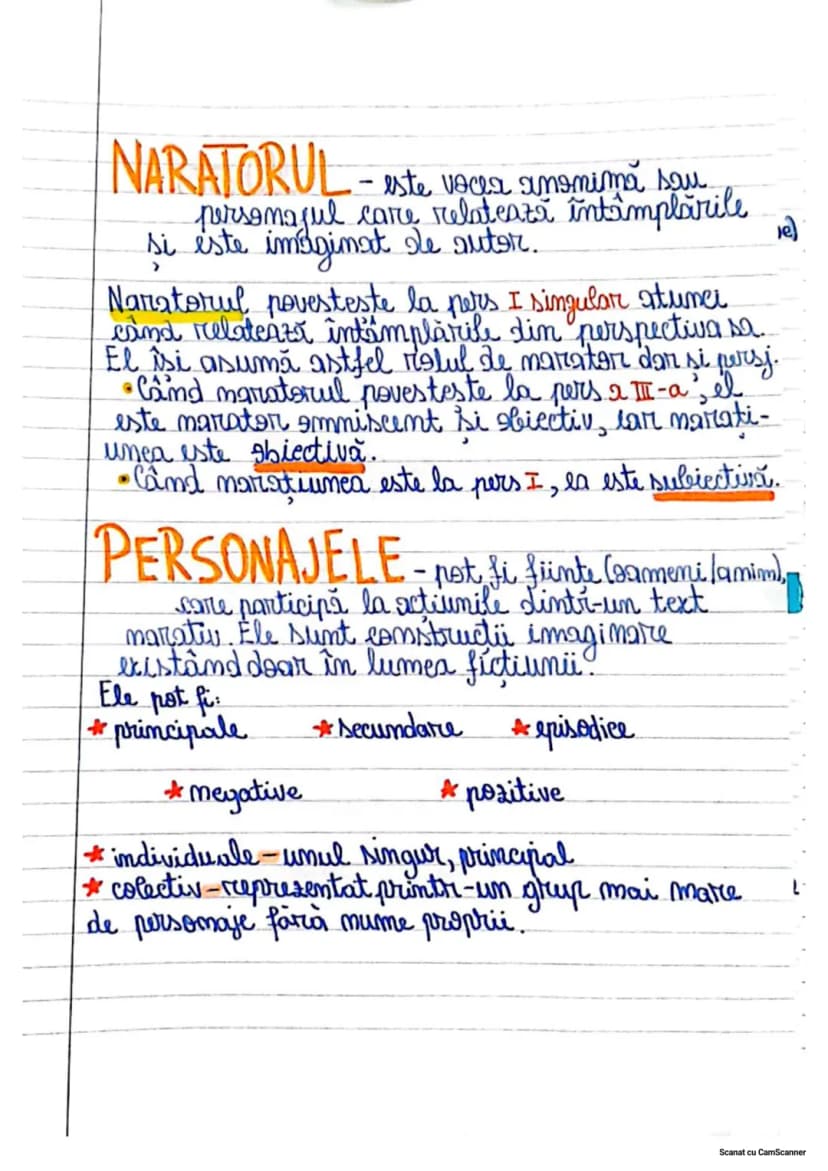 NARATORUL - este vocea anonimă sau
personajul care relatează întâmplările
și este imaginat de autor.
Naratorul povestește la pers I singular atunci
când relatează întâmplările din perspectiva sa.
El își asumă astfel rolul de narator dar și persj.
• Când naratorul povestește la pers a III-a, el
este narator omniscent și obiectiv, iar narați-
unea este obiectivă.
• Când narațiunea este la pers I, ea este subiectivă.
PERSONAJELE - pot fi ființe (oameni/anim),
care participă la acțiunile dintr-un text
narativ. Ele sunt construcții imaginare
existând doar în lumea ficțiunii.
Ele pot fi:
* principale * secundare * episodice
* negative * pozitive
* individuale - unul singur, principal
* colectiv - reprezentat printr-un grup mai mare
de personaje fără nume proprii.
Scanat cu CamScanner